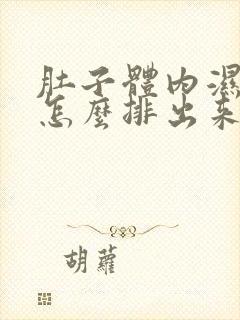 肚子體內濕
怎麼排出來
胡蘿